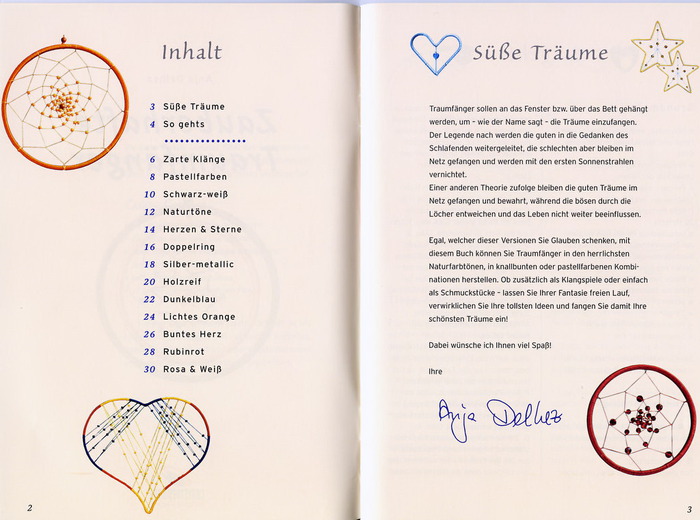 Inhalt
3 Süße Träume
4 So gehts
6 Zarte Klänge
8 Pastellfarben
10 Schwarz-weiß
12 Naturtöne
14 Herzen & Sterne
16 Doppelring
18 Silber-metallic
20 Holzreif
22 Dunkelblau
24 Lichtes Orange
26 Buntes Herz
28 Rubinrot
30 Rosa & Weiß
2
Süße Träume
Traumfänger sollen an das Fenster bzw. über das Bett gehängt
werden, um – wie der Name sagt – die Träume einzufangen.
Der Legende nach werden die guten in die Gedanken des
Schlafenden weitergeleitet, die schlechten aber bleiben im
Netz gefangen und werden mit den ersten Sonnenstrahlen
vernichtet.
Einer anderen Theorie zufolge bleiben die guten Träume im
Netz gefangen und bewahrt, während die bösen durch die
Löcher entweichen und das Leben nicht weiter beeinflussen.
Egal, welcher dieser Versionen Sie Glauben schenken, mit
diesem Buch können Sie Traumfänger in den herrlichsten
Naturfarbtönen, in knallbunten oder pastellfarbenen Kombi-
nationen herstellen. Ob zusätzlich als Klangspiele oder einfach
als Schmuckstücke – lassen Sie Ihrer Fantasie freien Lauf,
verwirklichen Sie Ihre tollsten Ideen und fangen Sie damit Ihre
schönsten Träume ein!
Dabei wünsche ich Ihnen viel Spaß!
Ihre
Anja Delhez
3